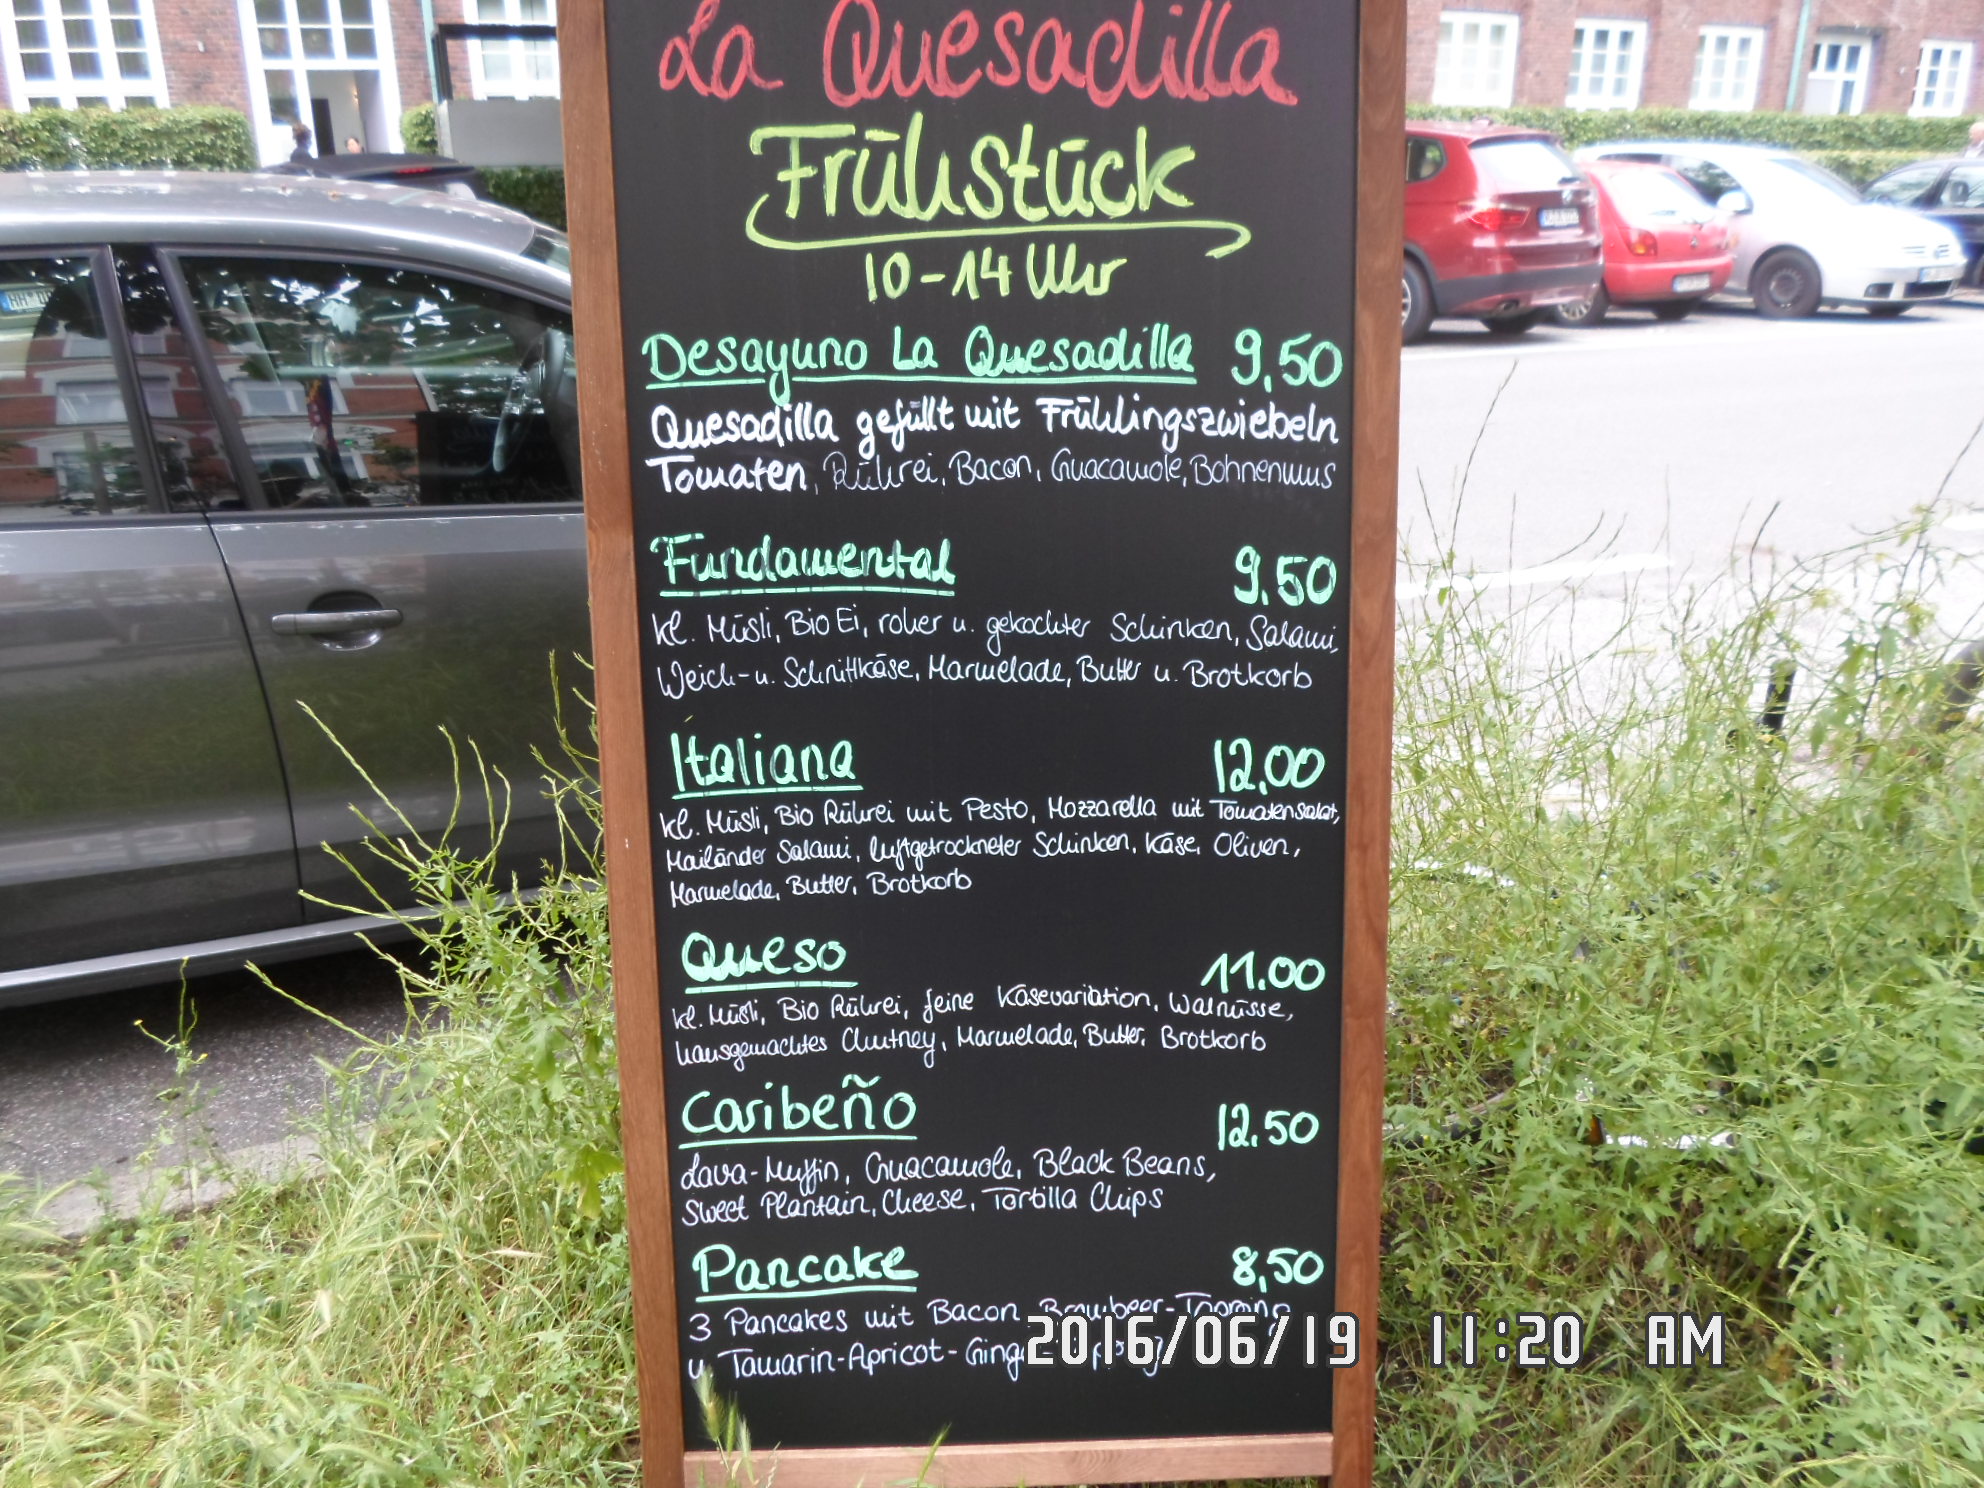 La Quesadilla
Frühstück
10-14 Uhr
Desayuno La Quesadilla 9,50
Quesadilla gefüllt mit Frühlingszwiebeln
Tomaten, Rührei, Bacon, Guacamole, Bohnenmus
Fundamental 9.50
kl. Müsli, Bio Ei, roher u. gekochter Schinken, Salami,
Weich- u. Schnittkäse, Marmelade, Butter u. Brotkorb
Italiana 12,00
kl. Müsli, Bio Rührei mit Pesto, Mozzarella mit Tomatensalat,
Mailänder Salami, luftgetrockneter Schinken, Käse, Oliven,
Marmelade, Butter, Brotkorb
Queso 11.00
kl. Müsli, Bio Rührei, feine Käsevariation, Walnüsse,
hausgemachtes Chutney, Marmelade, Butter, Brotkorb
Caribeño 12.50
Lava-Muffin, Guacamole, Black Beans,
Sweet Plantain, Cheese, Tortilla Chips
Pancake 8,50
3 Pancakes mit Bacon
u. Tamarin-Apricot-
2016/06/19 11:20 AM